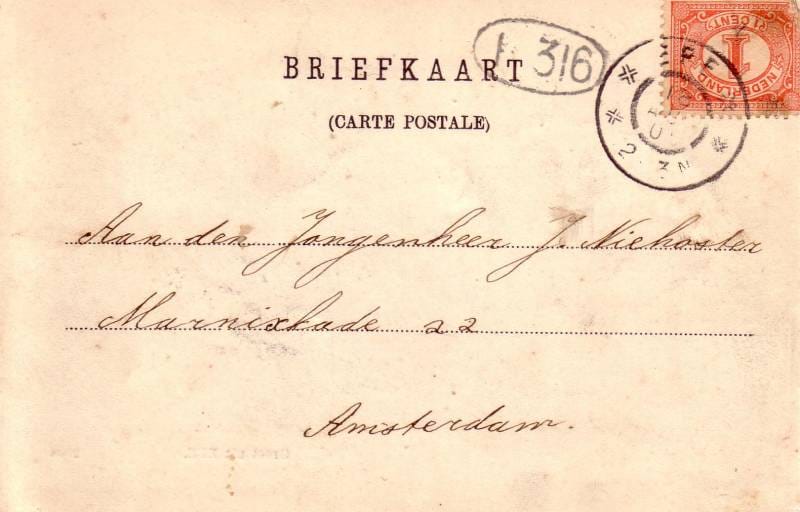 BRIEFKAART
(CARTE POSTALE)
316
1
NEDERLAND
CENT
2-3N
Aan den Jongenheer J. Niekoster
Marnixkade 22
Amsterdam.